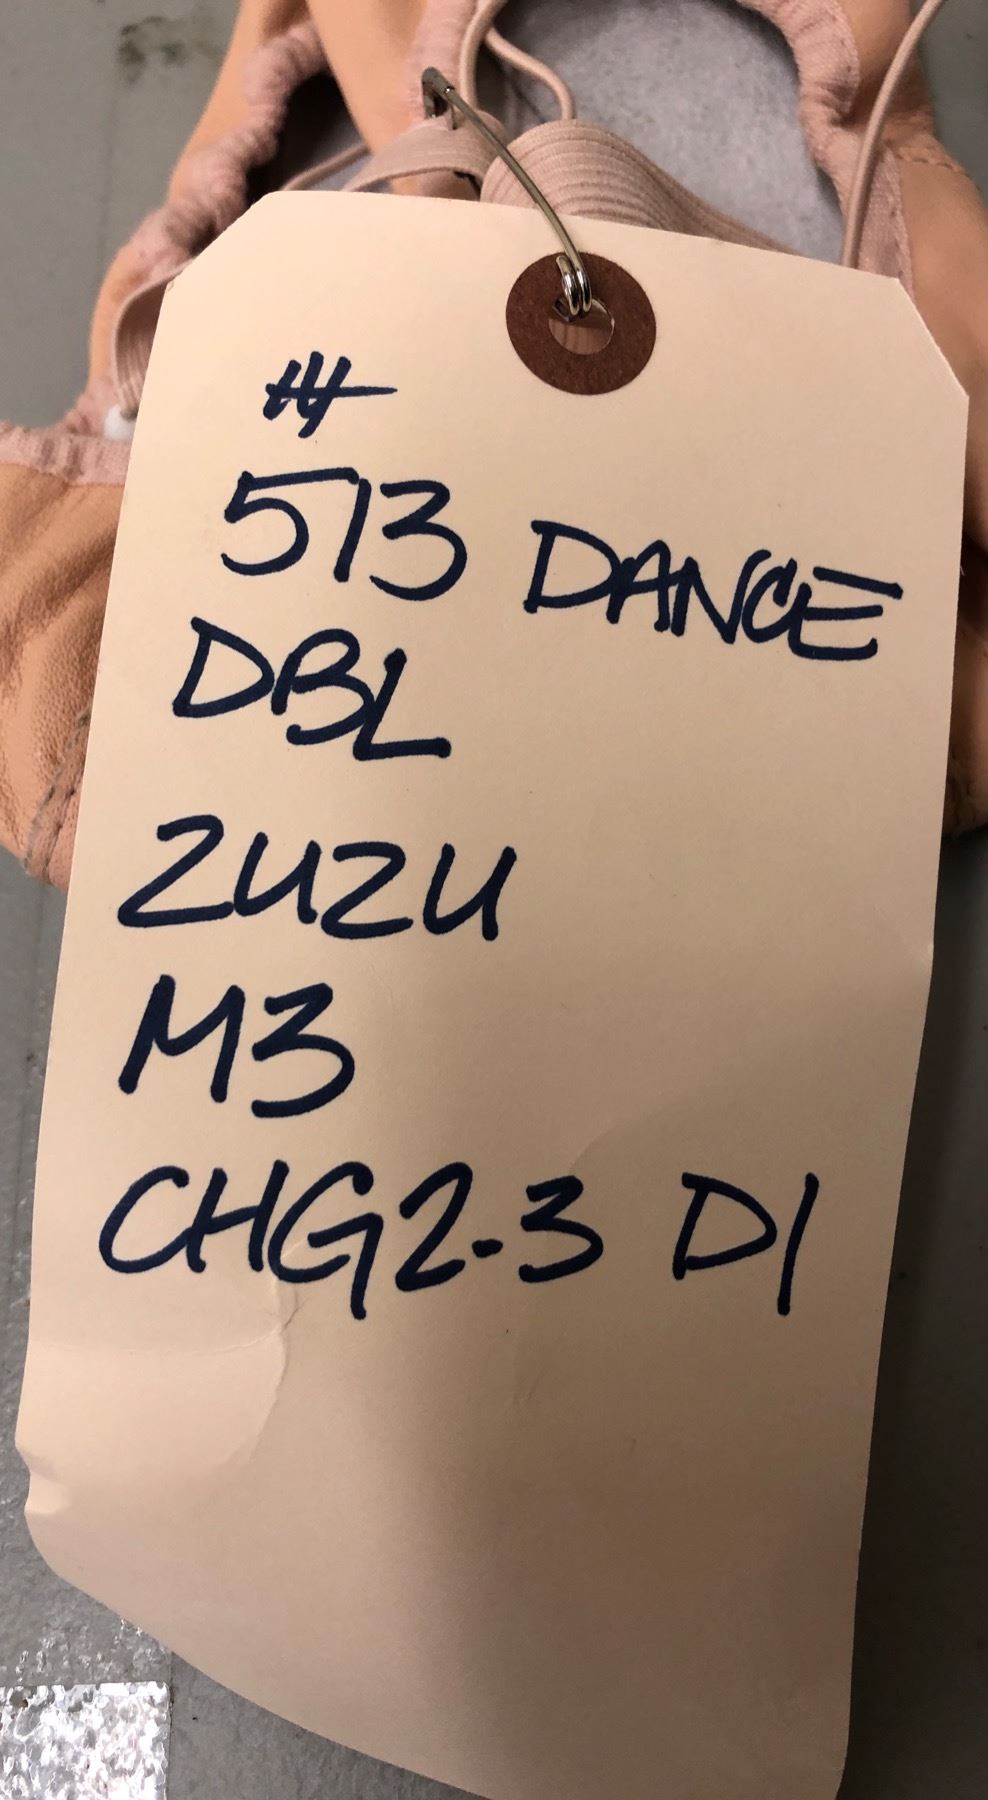 #
513 DANCE
DBL
ZUZU
M3
CHG2-3 D1